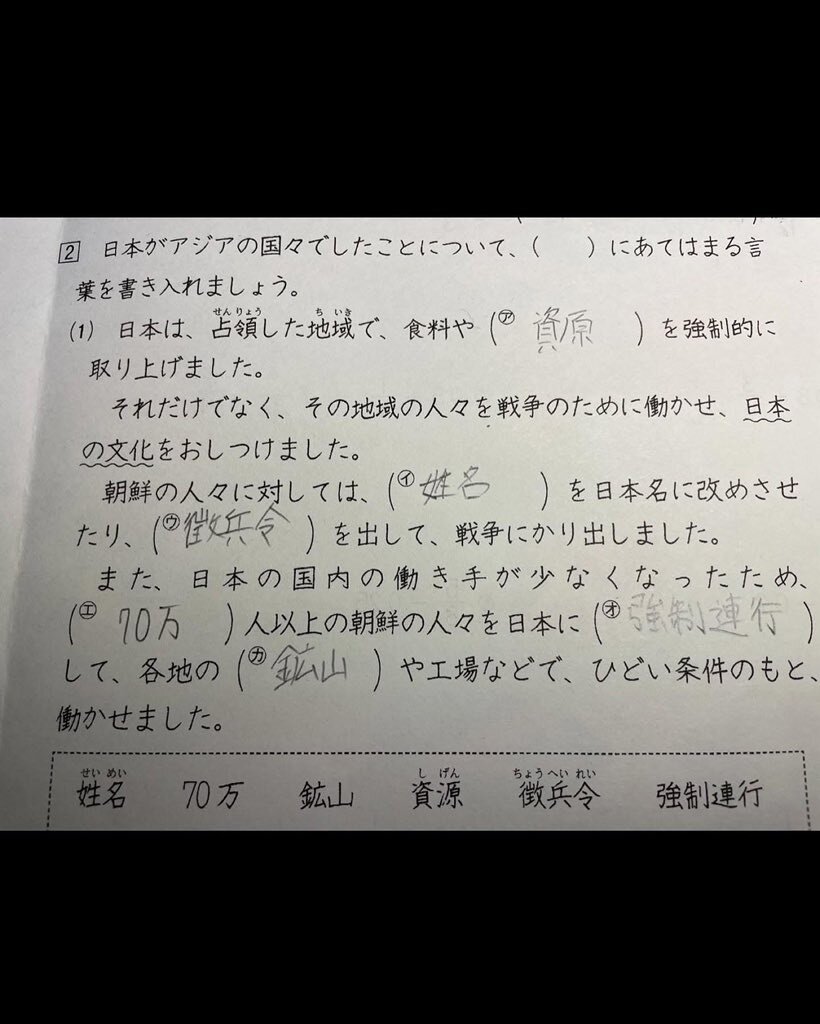 2 日本がアジアの国々でしたことについて、( )にあてはまる言
葉を書き入れましょう。
せんりょう ち いき
(1) 日本は、占領した地域で、食料や(㋐ 資原 )を強制的に
取り上げました。
それだけでなく、その地域の人々を戦争のために働かせ、日本
の文化をおしつけました。
朝鮮の人々に対しては、(㋑ 姓名 )を日本名に改めさせ
たり、(㋒ 徴兵令 )を出して、戦争にかり出しました。
また、日本の国内の働き手が少なくなったため、
(㋓ 70万 )人以上の朝鮮の人々を日本に(㋔ 強制連行 )
して、各地の(㋕ 鉱山 )や工場などで、ひどい条件のもと、
働かせました。
せい めい し げん ちょう へい れい
姓名 70万 鉱山 資源 徴兵令 強制連行